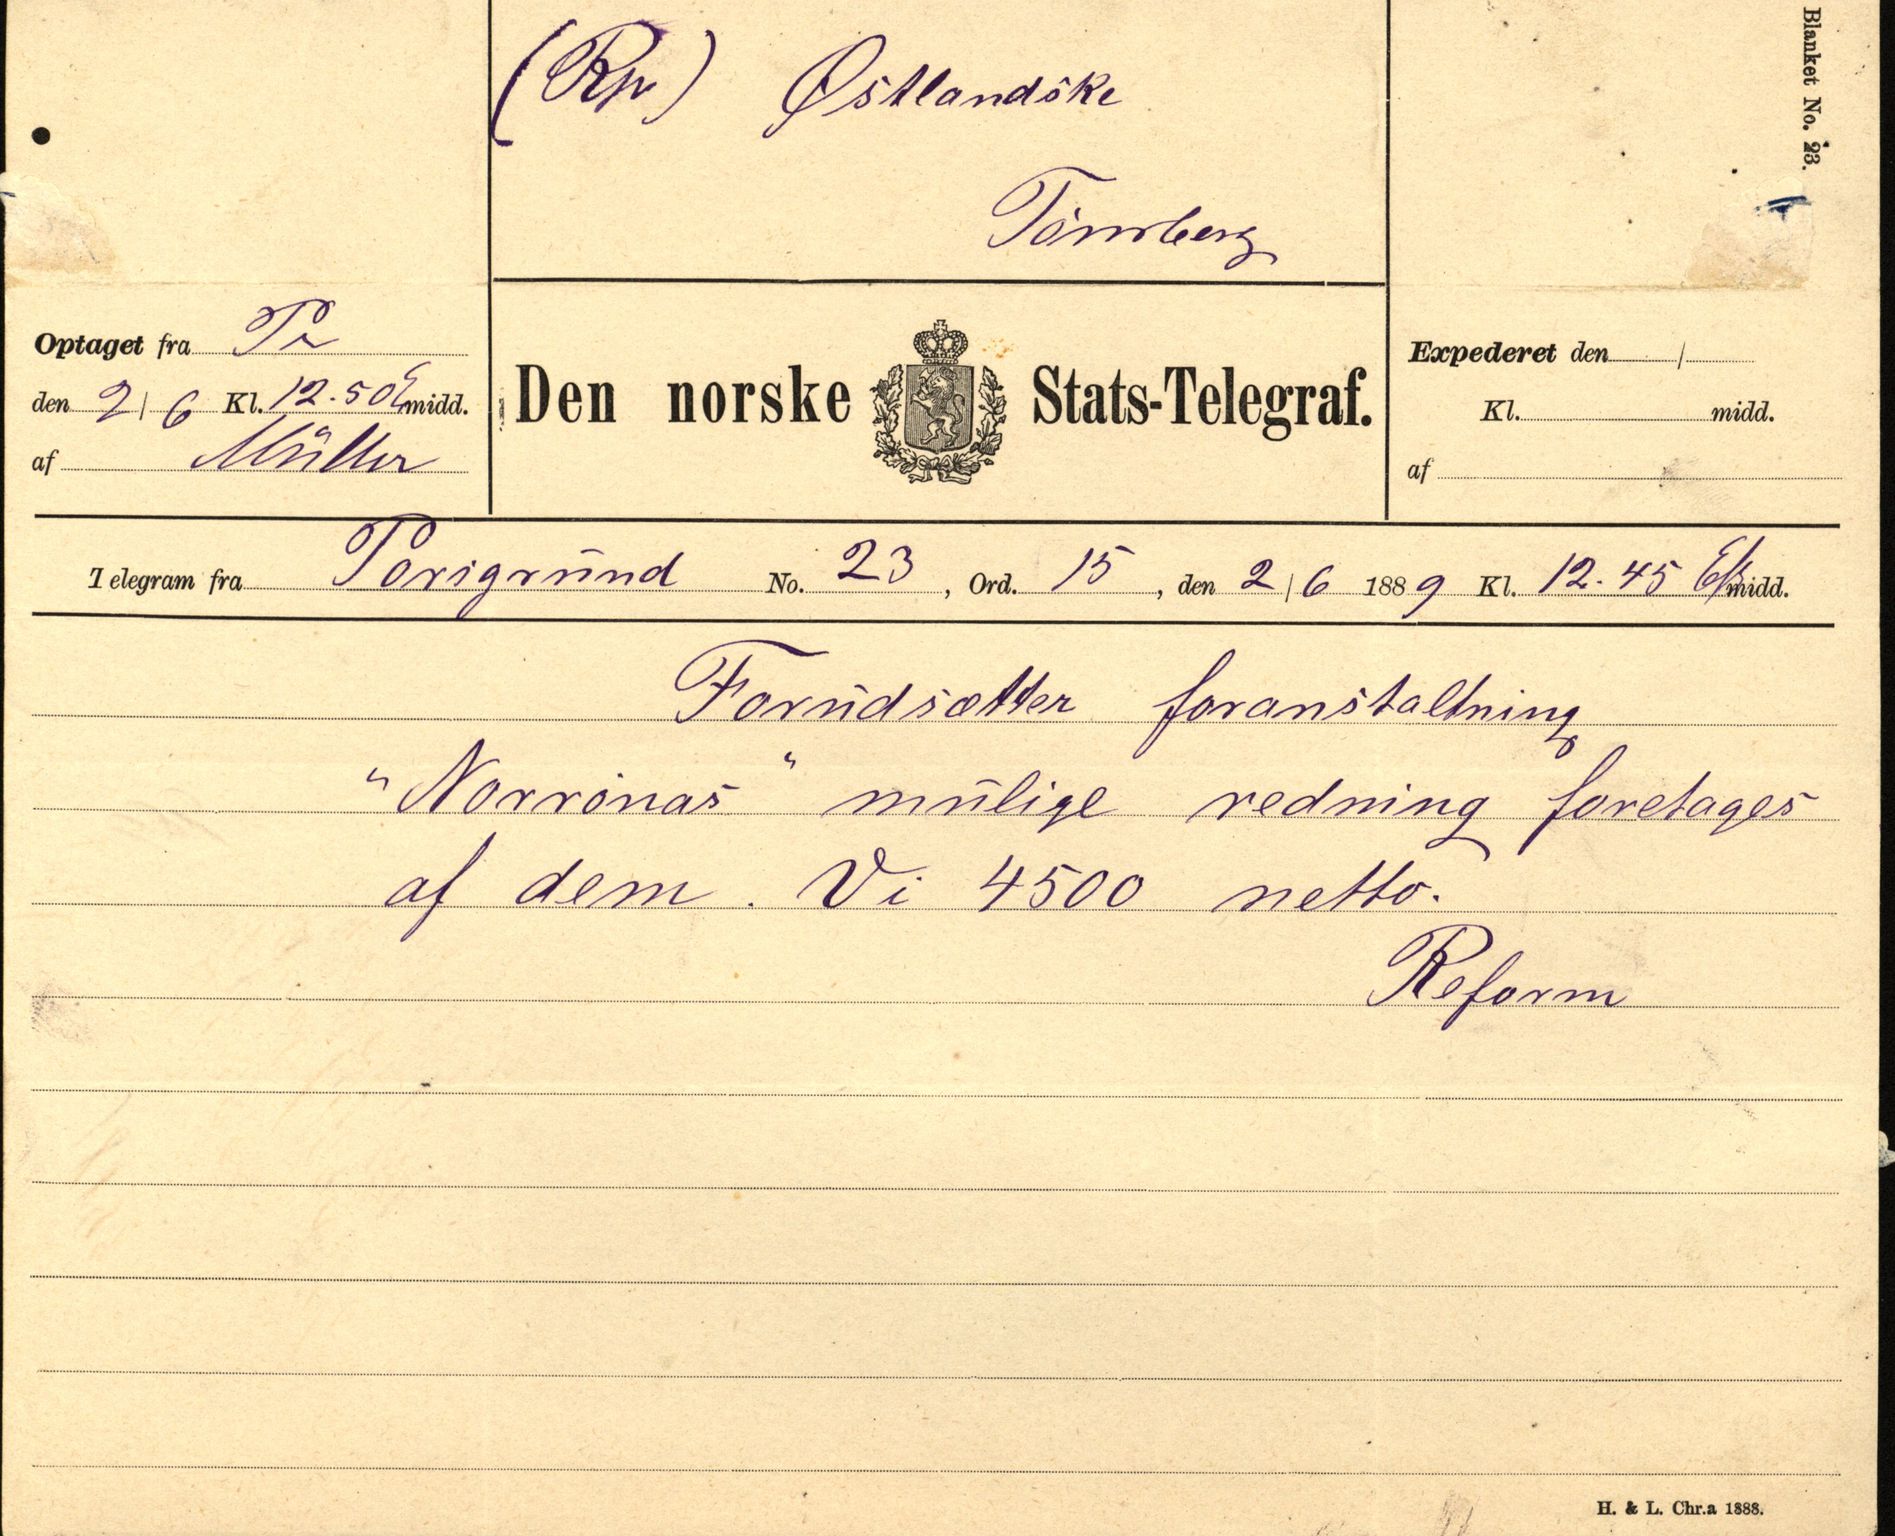 Blanket No. 23.
(Rp) Østlandske
Tönsberg
Optaget fra Pr
den 2/6 Kl. 12.50 E midd.
af Müller
Den norske Stats-Telegraf.
Expederet den /
Kl. midd.
af
Telegram fra Porsgrund No. 23, Ord. 15, den 2/6 1889 Kl. 12.45 Ef midd.
Forudsætter foranstaltning
"Norrönas" mulige redning foretages
af dem. Vi 4500 netto.
Reform
H. & L. Chr.a 1888.